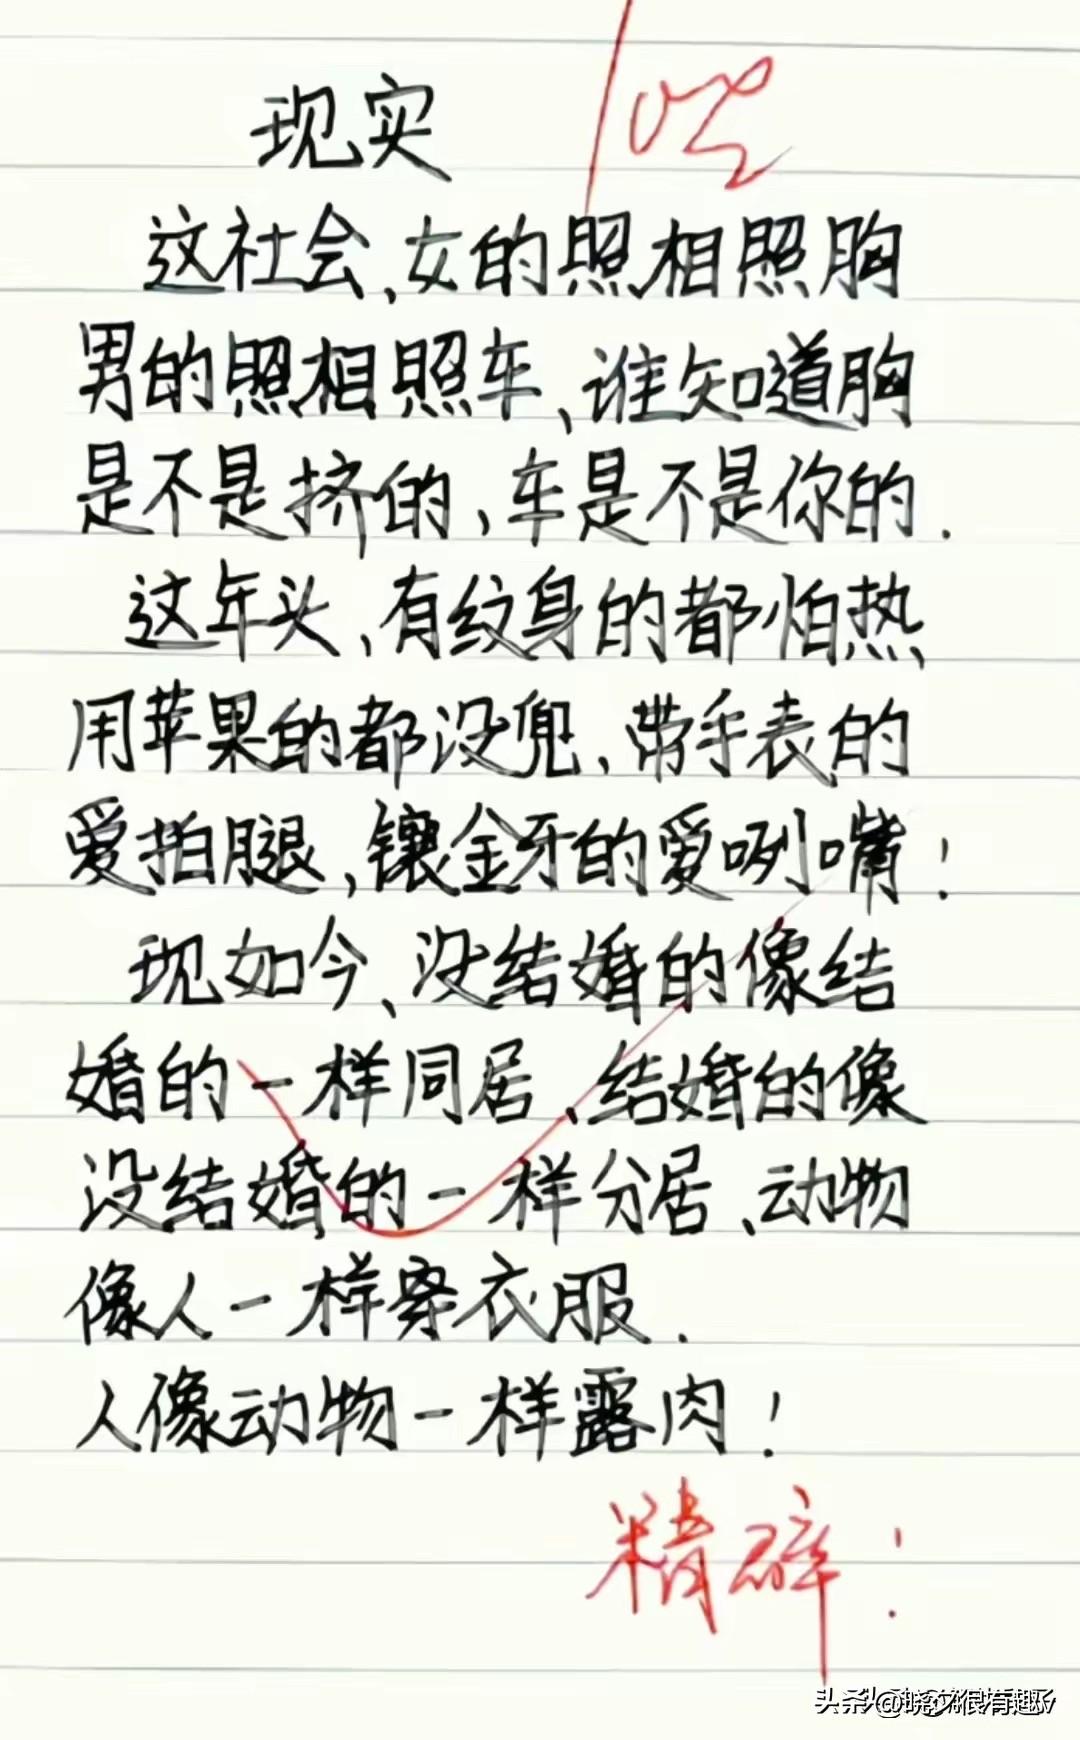 现实
这社会、女的照相照胸
男的照相照车、谁知道胸
是不是挤的,车是不是你的.
这年头、有纹身的都怕热、
用苹果的都没兜、带手表的
爱拍腿,镶金牙的爱咧嘴!
现如今、没结婚的像结
婚的一样同居、结婚的像
没结婚的一样分居、动物
像人一样穿衣服.
人像动物一样露肉!
精辟!
头条@晓文很有趣